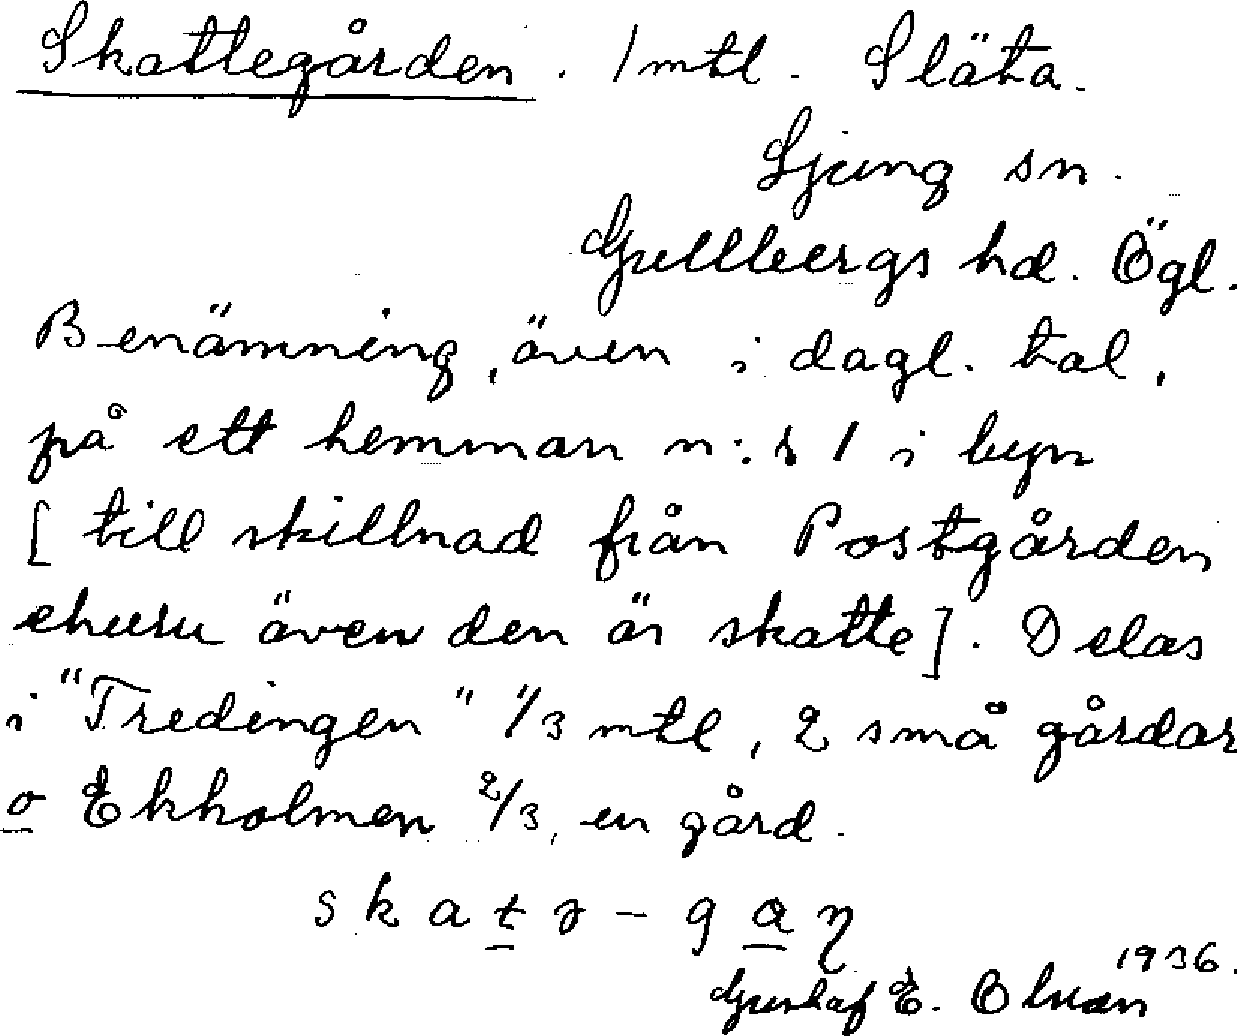 Skattegården. 1 mtl. Släta.
Ljung sn.
Gullbergs hd. Ögl.
Benämning, även i dagl. tal,
på ett hemman n:r 1 i byn
[till skillnad från Postgården
ehuru även den är skatte]. Delas
i "Tredingen" 1/3 mtl, 2 små gårdar
o Ekholmen 2/3, en gård.
1936.
Gustaf E.